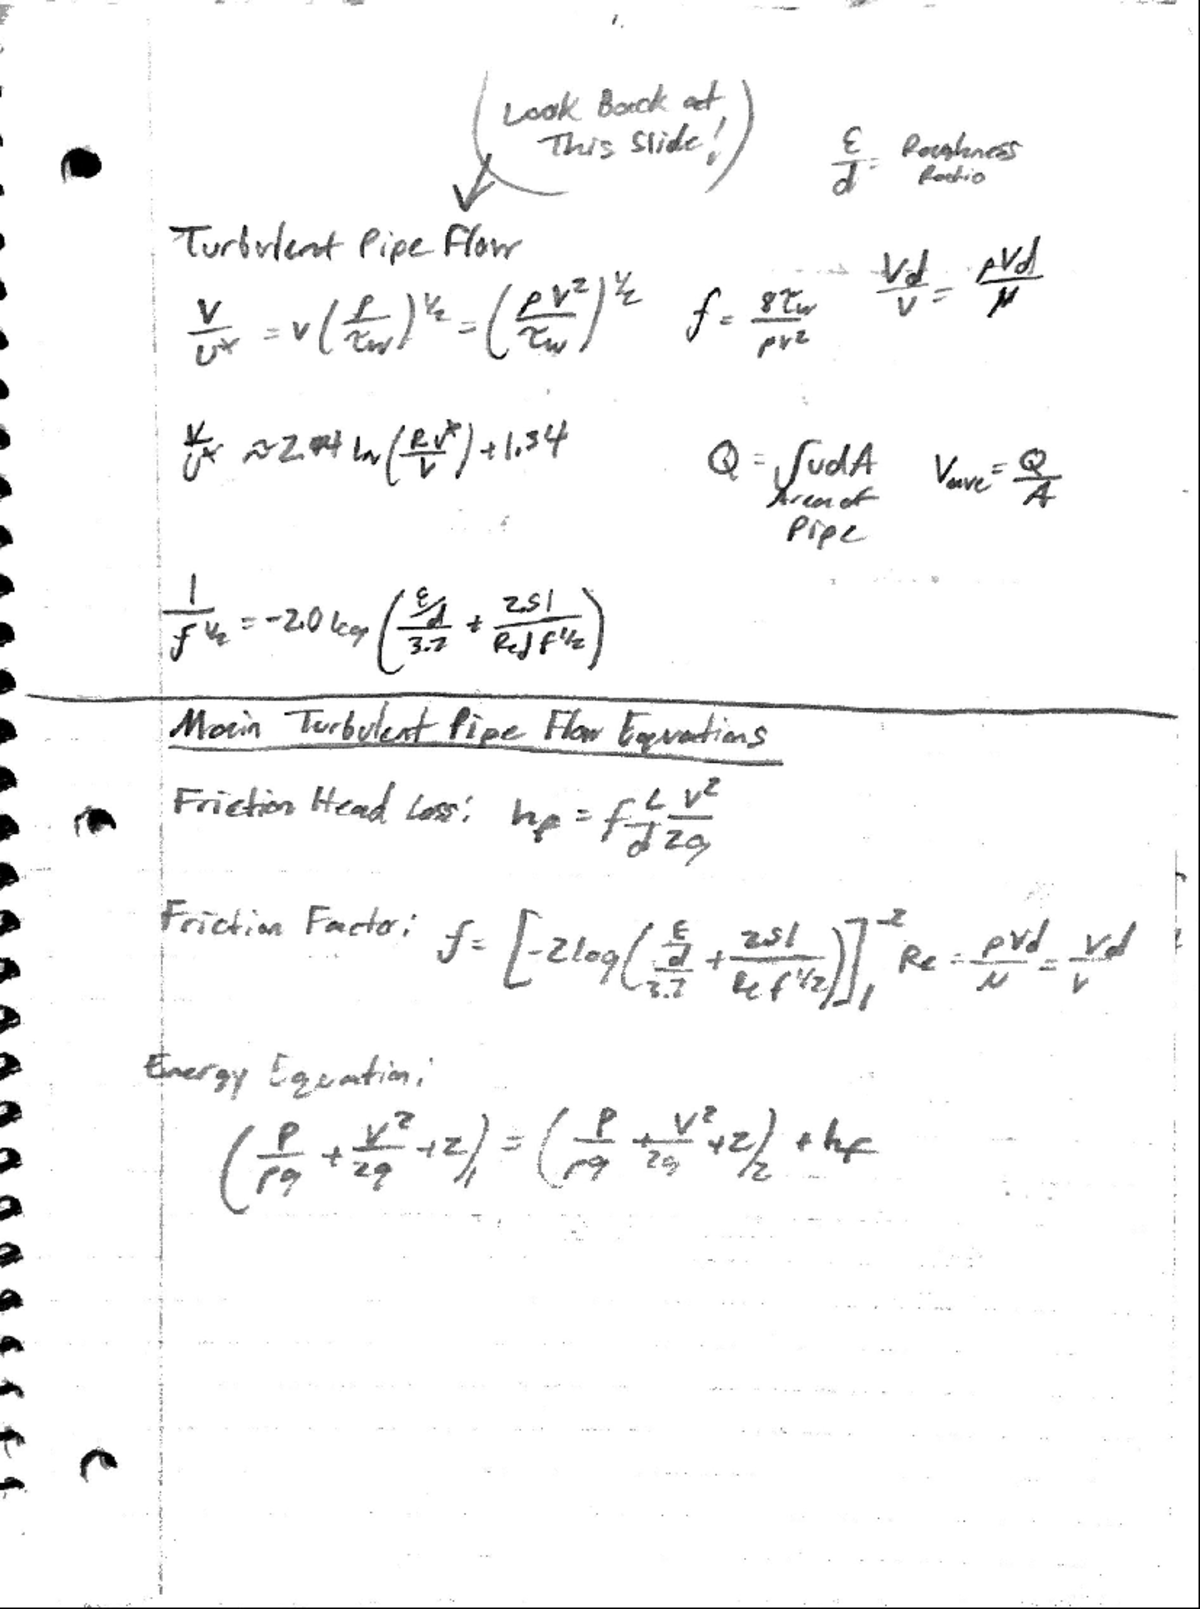 Look Back at
This Slide!
ε/d = Roughness
Ratio
Turbulent Pipe Flow
V/u* = V(ρ/τw)^1/2 = (ρV²/τw)^1/2   f = 8τw/ρv²   Vd/ν = ρVd/μ
V/u* ≈ 2.44 ln(Ru*/ν) + 1.34   Q = ∫udA   Vave = Q/A
Area of
Pipe
1/f^1/2 = -2.0 log(ε/d/3.7 + 2.51/(Red f^1/2))
Main Turbulent Pipe Flow Equations
Friction Head Loss: hf = f L/d V²/2g
Friction Factor: f = [-2log(ε/d/3.7 + 2.51/(Re f^1/2))]^-2, Re = ρVd/μ = Vd/ν
Energy Equation:
(P/ρg + V²/2g + z)1 = (P/ρg + V²/2g + z)2 + hf